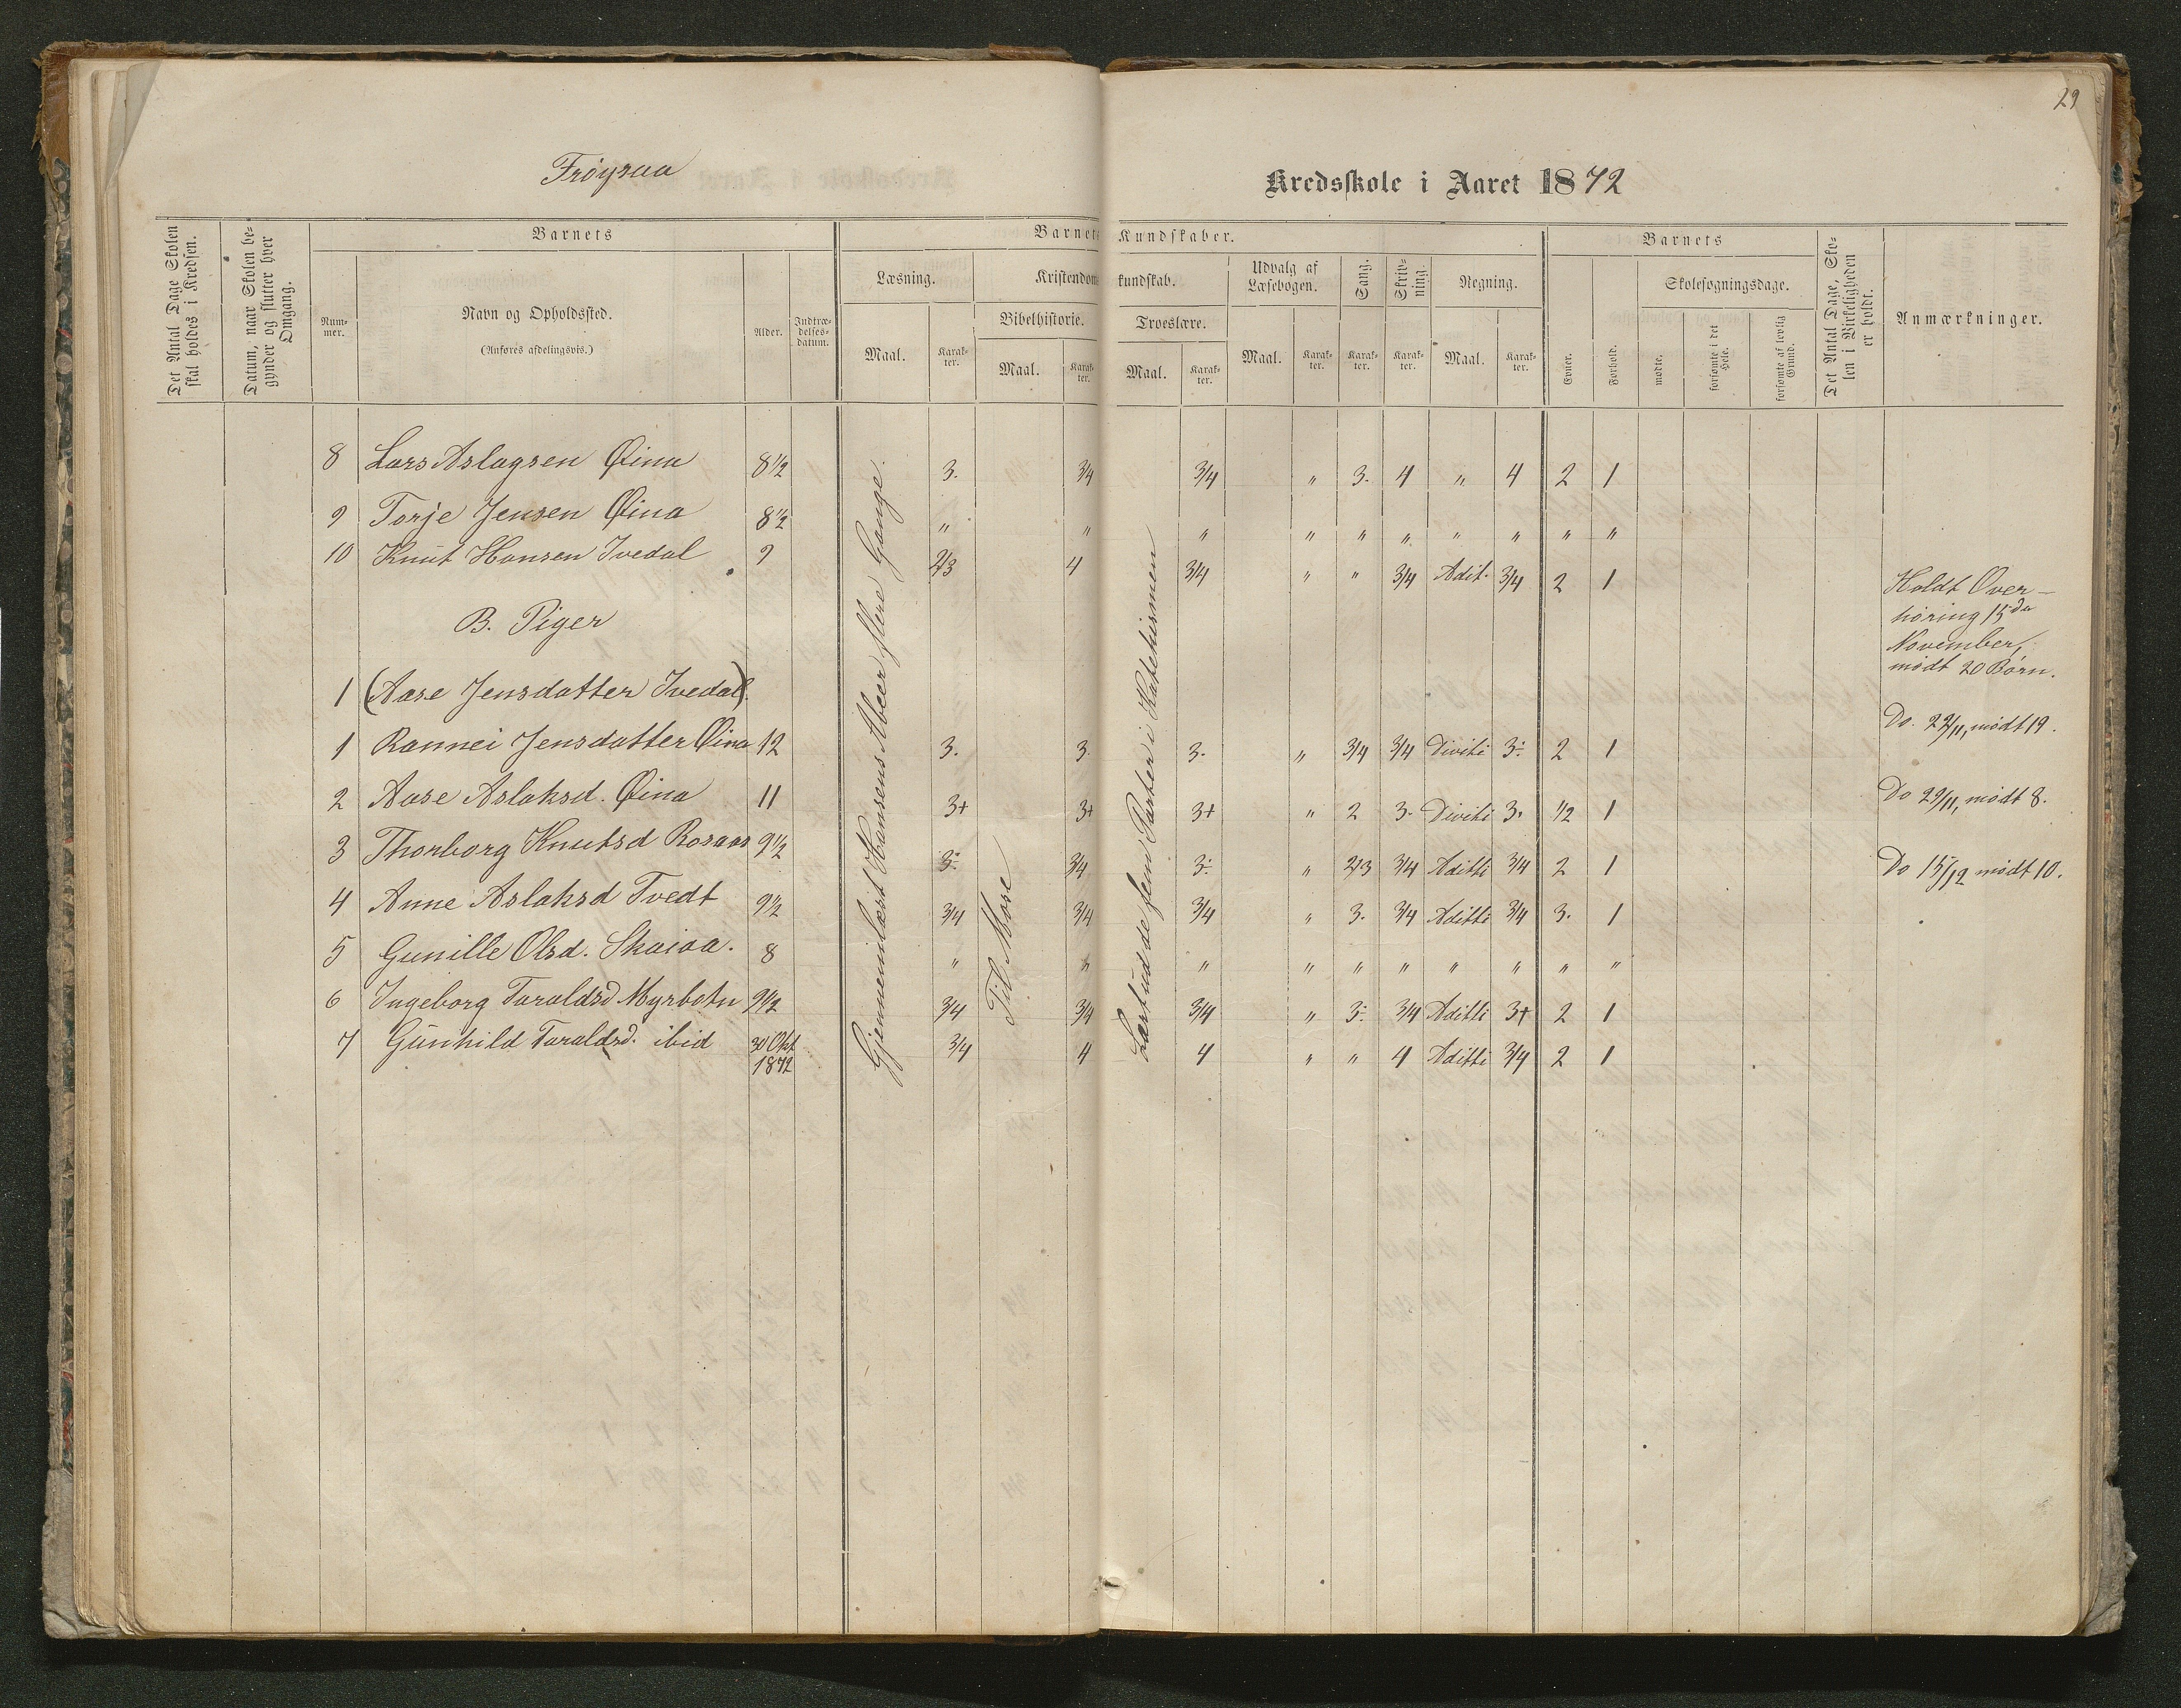 29
Frøysaa
Kredsskole i Aaret 1872
Det Antal Dage Skolen skal holdes i Kredsen.
Datum, naar Skolen begynder og slutter hver Omgang.
Barnets
Nummer.
Navn og Opholdssted.
(Anføres afdelingsvis.)
Alder.
Indtrædelsesdatum.
Barnets Kundskaber.
Læsning.
Maal.
Karakter.
Kristendomskundskab.
Bibelhistorie.
Maal.
Karakter.
Troeslære.
Maal.
Karakter.
Udvalg af Læsebogen.
Maal.
Karakter.
Sang.
Karakter.
Skrivning.
Karakter.
Regning.
Maal.
Karakter.
Barnets
Evner.
Forhold.
Skolesøgningsdage.
mødte.
forsømte i det Hele.
forsømte af lovlig Grund.
Det Antal Dage, Skolen i Virkeligheden er holdt.
Anmærkninger.
8 Lars Aslagsen Øina 8½ 3. 3/4 3/4 " 3. 4 " 4 2 1
9 Torje Jensen Øina 8½ " " " " " " " " " "
10 Knut Hansen Ivedal 9 2/3 4 3/4 " " 3/4 Adit. 3/4 2 1
B. Piger
1 (Aase Jensdatter Ivedal).
1 Rannei Jensdatter Øina 12 3. 3. 3. " 3/4 3/4 Diviti 3÷ 2 1
2 Aase Aslaksd. Øina 11 3+ 3+ 3+ " 2 3. Diviti 3. 1/2 1
3 Thonborg Knutsd Rosaas 9½ 3÷ 3/4 3÷ " 2/3 3/4 Aditti 3/4 2 1
4 Anne Aslaksd Tvedt 9½ 3/4 3/4 3/4 " 3. 3/4 Aditti 3/4 3. 1
5 Gunille Olsd. Skaiaa. 8 " " " " " " " " " "
6 Ingeborg Taraldsd Myrbotn 9½ 3/4 3/4 3/4 " 3÷ 3/4 Aditti 3+ 2 1
7 Gunhild Taraldsd. ibid 30 Okt 1872 3/4 4 4 " " 4 Aditti 3/4 2 1
Gjennemlæst Hansens Abeer flere Gange.
Til Mose
Lært ud de fem Parter i Katekismen
Holdt Over-
høring 15de
November,
mødt 20 Børn.
Do. 22/11, mødt 19.
Do 29/11, mødt 8.
Do 15/12 mødt 10.